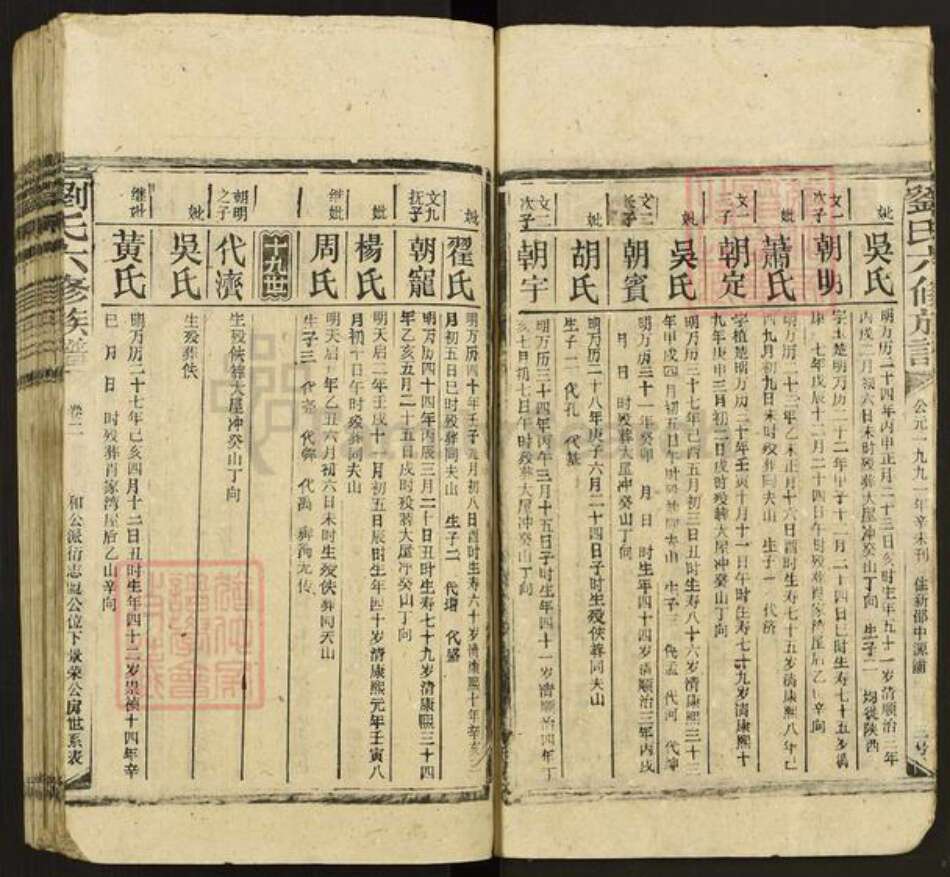 劉氏六修族譜
公元一九九一年辛未刊
住新邵中源鋪
妣
吳氏
明万历二十四年丙申正月二十三日亥时生年五十一岁清顺治三年
丙戌二月初六日未时殁葬大屋冲癸山丁向 生子二 均徙陕西
文一次子
朝明
妣
蕭氏
明万历二十三年乙未正月十六日酉时生寿七十五岁清康熙八年己
酉九月初九日未时殁葬同夫山 生子一 代济
文一子
朝定
字植楚明万历三十年壬寅十月十一日午时生寿七十九岁清康熙十
九年庚申三月初二日戌时殁葬大屋冲癸山丁向
妣
吳氏
明万历三十七年己酉五月初三日丑时生寿八十六岁清康熙三十三
年甲戌四月初五日午时殁葬同夫山 生子三
文二子
朝賓
明万历三十一年癸卯 月 日 时生年四十四岁清顺治三年丙戌
月 日 时殁葬大屋冲癸山丁向
妣
胡氏
明万历二十八年庚子六月二十四日子时生殁佚葬同夫山
生子二 代孔 代基
文二次子
朝宇
明万历三十四年丙午三月十五日子时生年四十一岁清顺治四年丁
亥七月初七日午时殁葬大屋冲癸山丁向
妣
翟氏
明万历四十年壬子九月初八日酉时生寿六十岁清康熙十年辛亥二
月初五日巳时殁葬同夫山 生子二 代瑨 代盛
文九抚子
朝寵
明万历四十四年丙辰三月二十日丑时生寿七十九岁清康熙三十四
年乙亥五月二十五日戌时殁葬大屋冲癸山丁向
妣
楊氏
明天启二年壬戌十一月初五日辰时生年四十岁清康熙元年壬寅八
月初十日午时殁葬同夫山
继妣
周氏
明天启五年乙丑六月初六日未时生殁佚葬同夫山
十九世
朝明之子
代濟
生殁佚葬大屋冲癸山丁向
妣
吳氏
生殁葬佚
继妣
黃氏
明万历二十七年己亥四月十二日丑时生年四十三岁崇祯十四年辛
巳 月 日 时殁葬肖家湾屋后乙山辛向
劉氏六修族譜
卷二
和公派衍志凝公位下景荣公房世系表